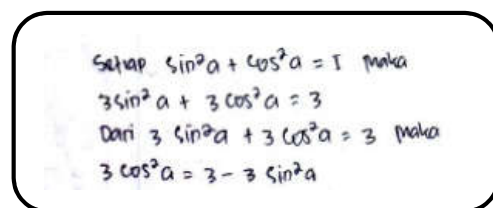 Setiap sin²a + cos²a = 1 maka
3sin²a + 3cos²a = 3
Dari 3 sin²a + 3cos²a = 3 maka
3 cos²a = 3 - 3 sin²a